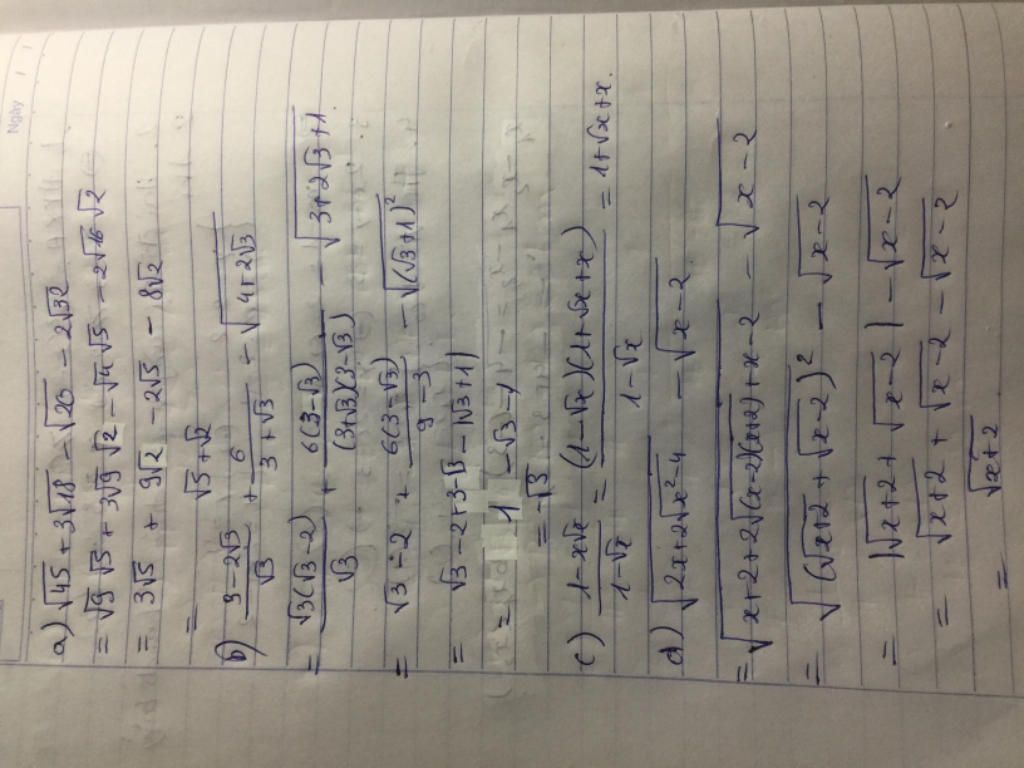 Ngày
a) √45 + 3√18 - √20 - 2√32
= √9 √5 + 3√9 √2 - √4 √5 - 2√16 √2
= 3√5 + 9√2 - 2√5 - 8√2
= √5 + √2
b) (3-2√3)/√3 + 6/(3+√3) - √(4+2√3)
= √3(√3-2)/√3 + 6(3-√3)/((3+√3)(3-√3)) - √(3+2√3+1)
= √3 - 2 + 6(3-√3)/(9-3) - √((√3+1)²)
= √3 - 2 + 3 - √3 - |√3+1|
= 1 - √3 - 1
= -√3
c) (1-x√x)/(1-√x) = (1-√x)(1+√x+x)/(1-√x) = 1+√x+x.
d) √(2x+2√(x²-4)) - √(x-2)
= √(x+2+2√((x-2)(x+2))+x-2) - √(x-2)
= √((√(x+2)+√(x-2))²) - √(x-2)
= |√(x+2)+√(x-2)| - √(x-2)
= √(x+2) + √(x-2) - √(x-2)
= √(x+2)